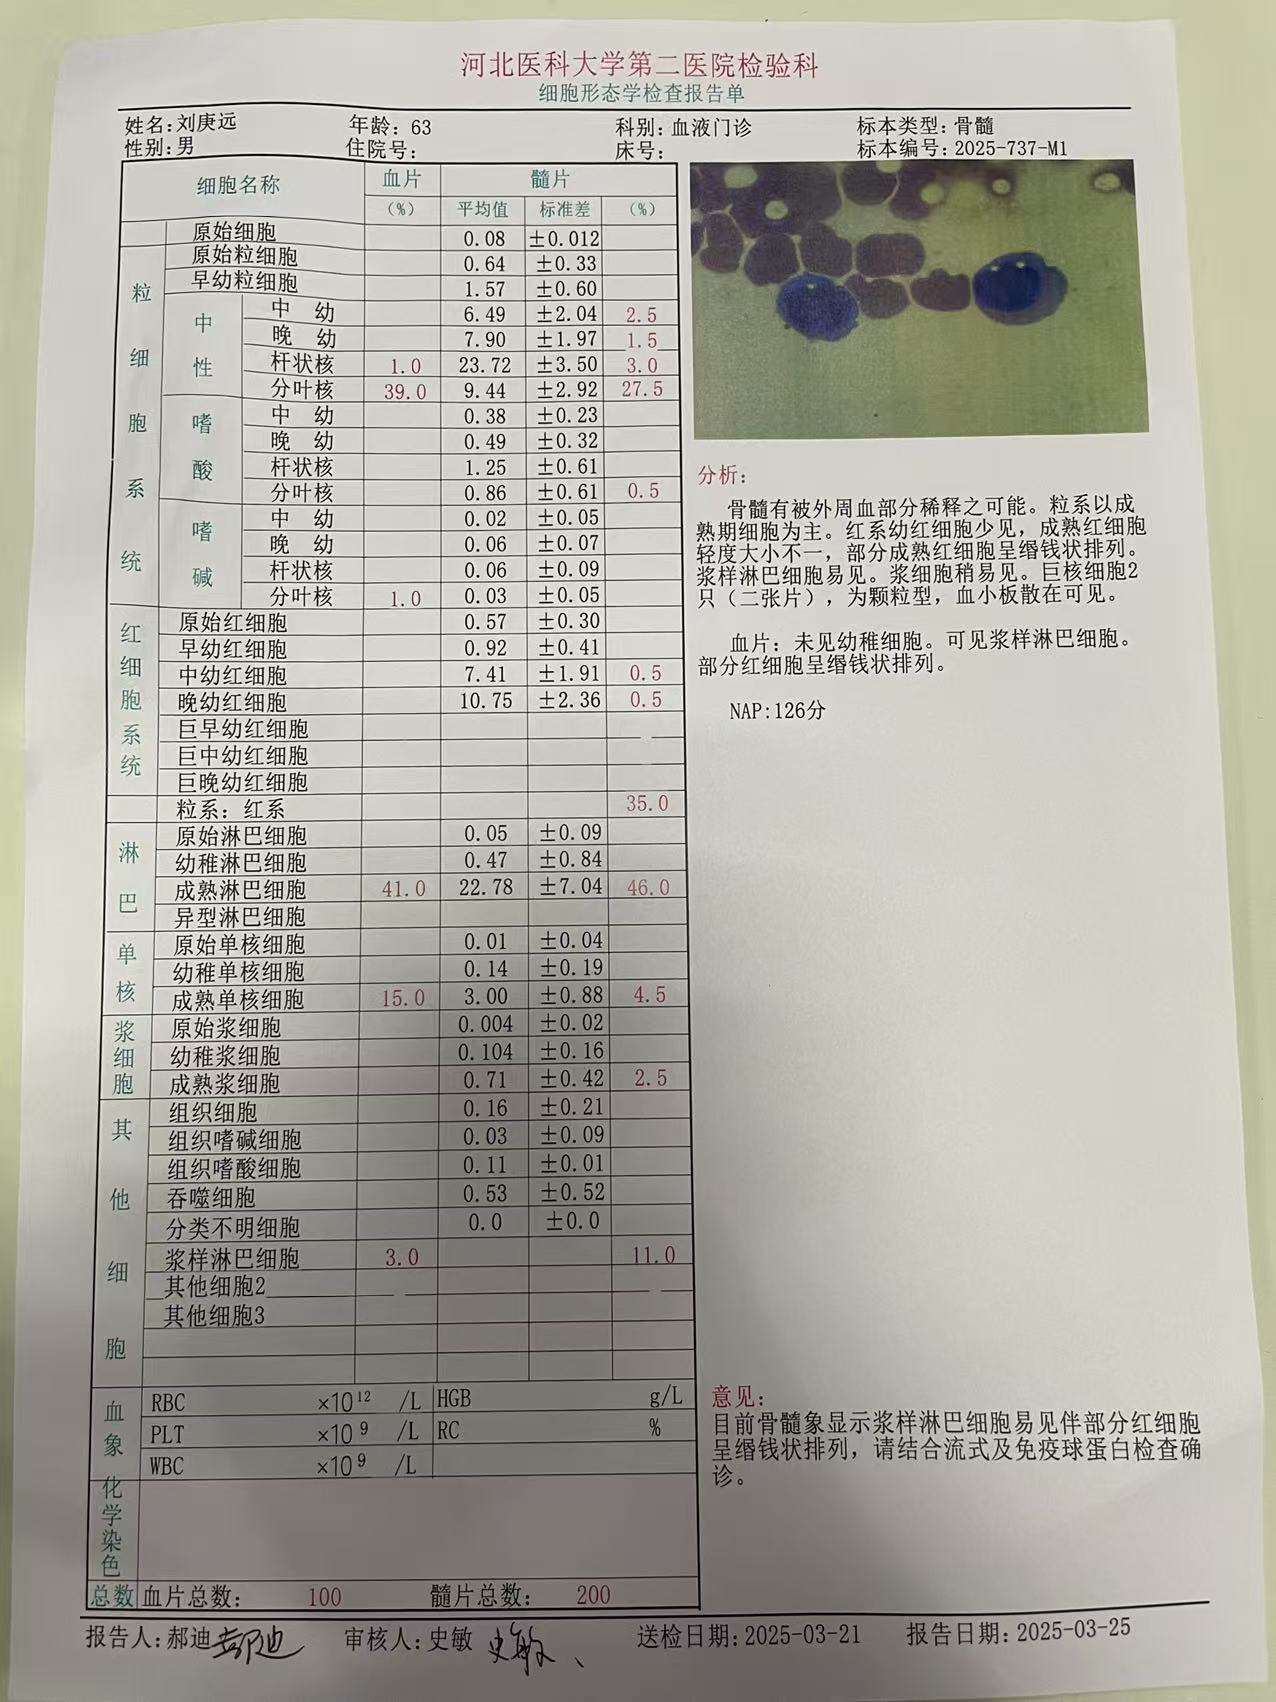 河北医科大学第二医院检验科
细胞形态学检查报告单
姓名:刘庚远 年龄: 63 科别: 血液门诊 标本类型: 骨髓
性别: 男 住院号: 床号: 标本编号: 2025-737-M1
细胞名称 血片 髓片
(%) 平均值 标准差 (%)
原始细胞 0.08 ±0.012
粒细胞系统
原始粒细胞 0.64 ±0.33
早幼粒细胞 1.57 ±0.60
中性
中幼 6.49 ±2.04 2.5
晚幼 7.90 ±1.97 1.5
杆状核 1.0 23.72 ±3.50 3.0
分叶核 39.0 9.44 ±2.92 27.5
嗜酸
中幼 0.38 ±0.23
晚幼 0.49 ±0.32
杆状核 1.25 ±0.61
分叶核 0.86 ±0.61 0.5
嗜碱
中幼 0.02 ±0.05
晚幼 0.06 ±0.07
杆状核 0.06 ±0.09
分叶核 1.0 0.03 ±0.05
红细胞系统
原始红细胞 0.57 ±0.30
早幼红细胞 0.92 ±0.41
中幼红细胞 7.41 ±1.91 0.5
晚幼红细胞 10.75 ±2.36 0.5
巨早幼红细胞
巨中幼红细胞
巨晚幼红细胞
粒系: 红系 35.0
淋巴
原始淋巴细胞 0.05 ±0.09
幼稚淋巴细胞 0.47 ±0.84
成熟淋巴细胞 41.0 22.78 ±7.04 46.0
异型淋巴细胞
单核
原始单核细胞 0.01 ±0.04
幼稚单核细胞 0.14 ±0.19
成熟单核细胞 15.0 3.00 ±0.88 4.5
浆细胞
原始浆细胞 0.004 ±0.02
幼稚浆细胞 0.104 ±0.16
成熟浆细胞 0.71 ±0.42 2.5
其他细胞
组织细胞 0.16 ±0.21
组织嗜碱细胞 0.03 ±0.09
组织嗜酸细胞 0.11 ±0.01
吞噬细胞 0.53 ±0.52
分类不明细胞 0.0 ±0.0
浆样淋巴细胞 3.0 11.0
其他细胞2
其他细胞3
血象
RBC ×10¹² /L HGB g/L
PLT ×10⁹ /L RC %
WBC ×10⁹ /L
化学染色
总数 血片总数: 100 髓片总数: 200
分析:
骨髓有被外周血部分稀释之可能。粒系以成
熟期细胞为主。红系幼红细胞少见，成熟红细胞
轻度大小不一，部分成熟红细胞呈缗钱状排列。
浆样淋巴细胞易见。浆细胞稍易见。巨核细胞2
只（二张片），为颗粒型，血小板散在可见。
血片: 未见幼稚细胞。可见浆样淋巴细胞。
部分红细胞呈缗钱状排列。
NAP:126分
意见:
目前骨髓象显示浆样淋巴细胞易见伴部分红细胞
呈缗钱状排列，请结合流式及免疫球蛋白检查确
诊。
报告人: 郝迪 郝迪 审核人: 史敏 史敏 送检日期: 2025-03-21 报告日期: 2025-03-25